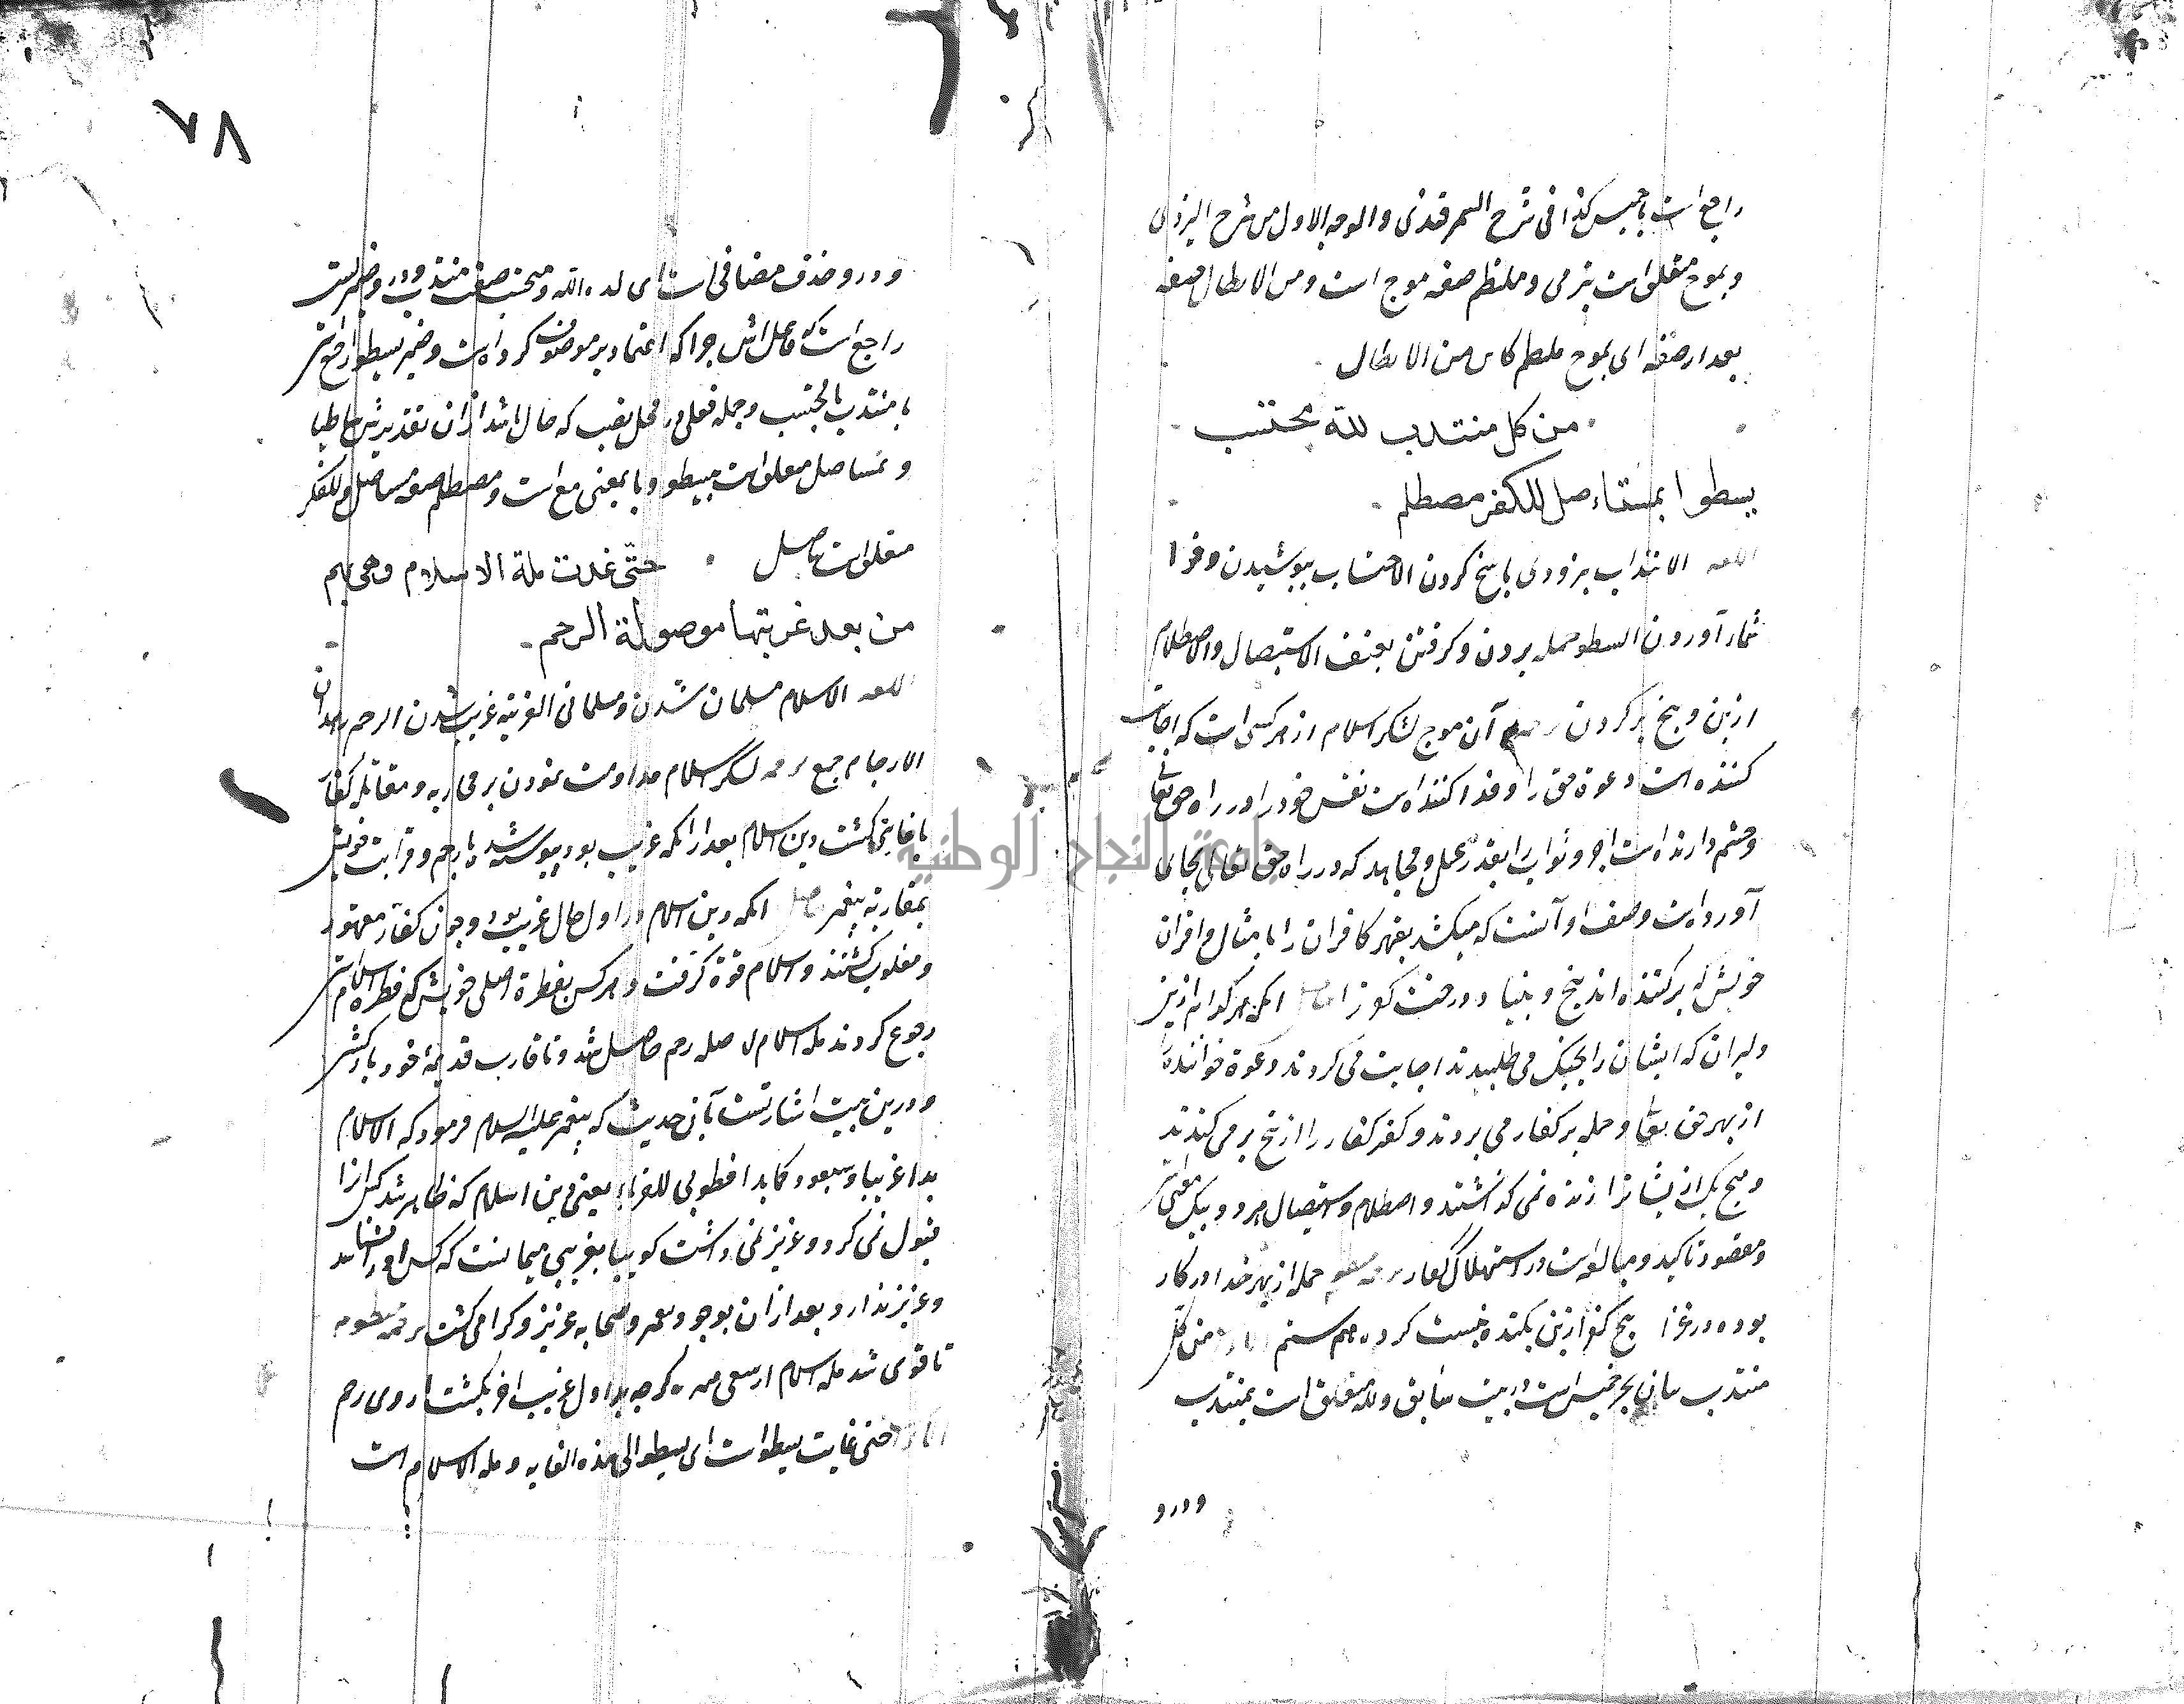 راجع است بخمیس کذا فی شرح السمرقندی والوجه الاول من شرح الیزدی
و بموج متعلق است بیرمی و ملتطم صفه موج است و من الابطال صفه
بعد از صفه ای بموج ملتطم کاین من الابطال
من کل منتدب لله محتسب
یسطوا بمستاءصل للکفر مصطلم
اللغه الانتداب بزودی پاسخ کردن الاحتساب بیوشیدن و فرا
شمار آوردن السطو حمله بردن و کرفتن بعنف الاستیصال والاصطلام
از بن و بیخ بر کردن آن موج لشکر اسلام از هر کسی است که اجابت
کننده است دعوة حق را و فدا کننده است نفس خود را در راه حق تعالی
و چشم دارنده است اجر و ثواب را بقدر عمل و مجاهد که در راه حق تعالی بجای
آورده است وصف او آنست که میکشد بقهر کافران را با مثال و اقران
خویش که برکننده اند بیخ و بنیاد درخت کفر را آنکه هر کدام ازین
دلیران که ایشان را بجنک می طلبیدند اجابت می کردند دعوة خواننده
از بهر حق تعالی و حمله بر کفار می بردند و کفر کفار را از بیخ بر می کندند
و هیچ یک از ایشانرا زنده نمی کذاشتند و اصطلام و استیصال هر دو بیک معنی
و مقصود تاکید و مبالغه است در استهلاک کفار حمله از بهر خدا در کار
بوده در غزا بیخ کفر از بن بکنده نیست کرده هم ستم من کل
منتدب بیان بحر خمیس است در بیت سابق و لله متعلق است بمنتدب
ودرو
٧٨
و درو حذف مضافی است ای لدین الله و محتسب صفت منتدب و درو ضمیریست
راجع است که فاعل اش چرا که اعتماد بر موصوف کرده است و ضمیر یسطو راجع
با منتدب یا محتسب و جمله فعلی در محل نصب که حال باشد از آن تقدیرش ساطیا
و بمستاصل متعلق است بیسطو و با بمعنی مع است و مصطلم صفه مستاصل و للکفر
متعلق است بمستاصل حتّی غدت ملة الاسلام وهی بهم
من بعد غربتها موصولة الرحم
اللغه الاسلام مسلمان شدن و مسلمانی الغربة غریب شدن الرحم زهدان
الارحام جمع ترجمه لشکر اسلام مداومت نمودن بر محاربه و مقاتله کفار
تا غایتی کشت دین اسلام بعد از آنکه غریب بود پیوسته شده با رحم و قرابت خویش
بمقاربه پیغمبر آنکه دین اسلام در اول حال غریب بود و چون کفار مقهور
و مغلوب کشتند و اسلام قوة کرفت و هر کس بفطرة اصلی خویش که فطره اسلام است
رجوع کردند ملة اسلام را صله رحم حاصل شد و با اقارب قدیمهٔ خود باز کشت
و درین بیت اشارتست بآن حدیث که پیغمبر علیه السلام فرمود که الاسلام
بدا غریبا و سیعود کما بدا فطوبی للغرباء یعنی دین اسلام که ظاهر شد کس آنرا
قبول نمی کرد و عزیز نمی داشت کوییا بغریبی میمانست که کس او را نشناسد
و عزیز ندارد و بعد از آن بوجود پیغمبر و صحابه عزیز و کرامی کشت ترجمه منظومه
تا قوی شد ملة اسلام از سعی همه کرچه بد اول غریب آخر بکشت از وی رحم
حتی غایت یسطو است ای یسطو الی هذه الغایه و ملة الاسلام است
جامعة النجاح الوطنية